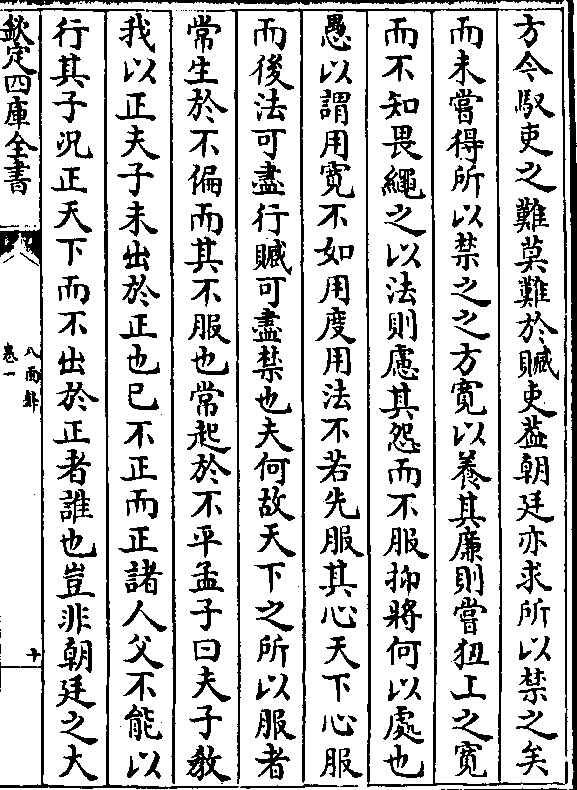 方今馭吏之難莫難於贓吏葢朝廷亦求所以禁之矣
而未嘗得所以禁之之方寛以養其廉則嘗狃上之寛
而不知畏繩之以法則慮其怨而不服抑將何以處也
愚以謂用寛不如用度用法不若先服其心天下心服
而後法可盡行贓可盡禁也夫何故天下之所以服者
常生於不偏而其不服也常起於不平孟子曰夫子教
我以正夫子未出於正也已不正而正諸人父不能以
行其子况正天下而不出於正者誰也豈非朝廷之大
欽定四庫全書
八面鋒
卷一
十